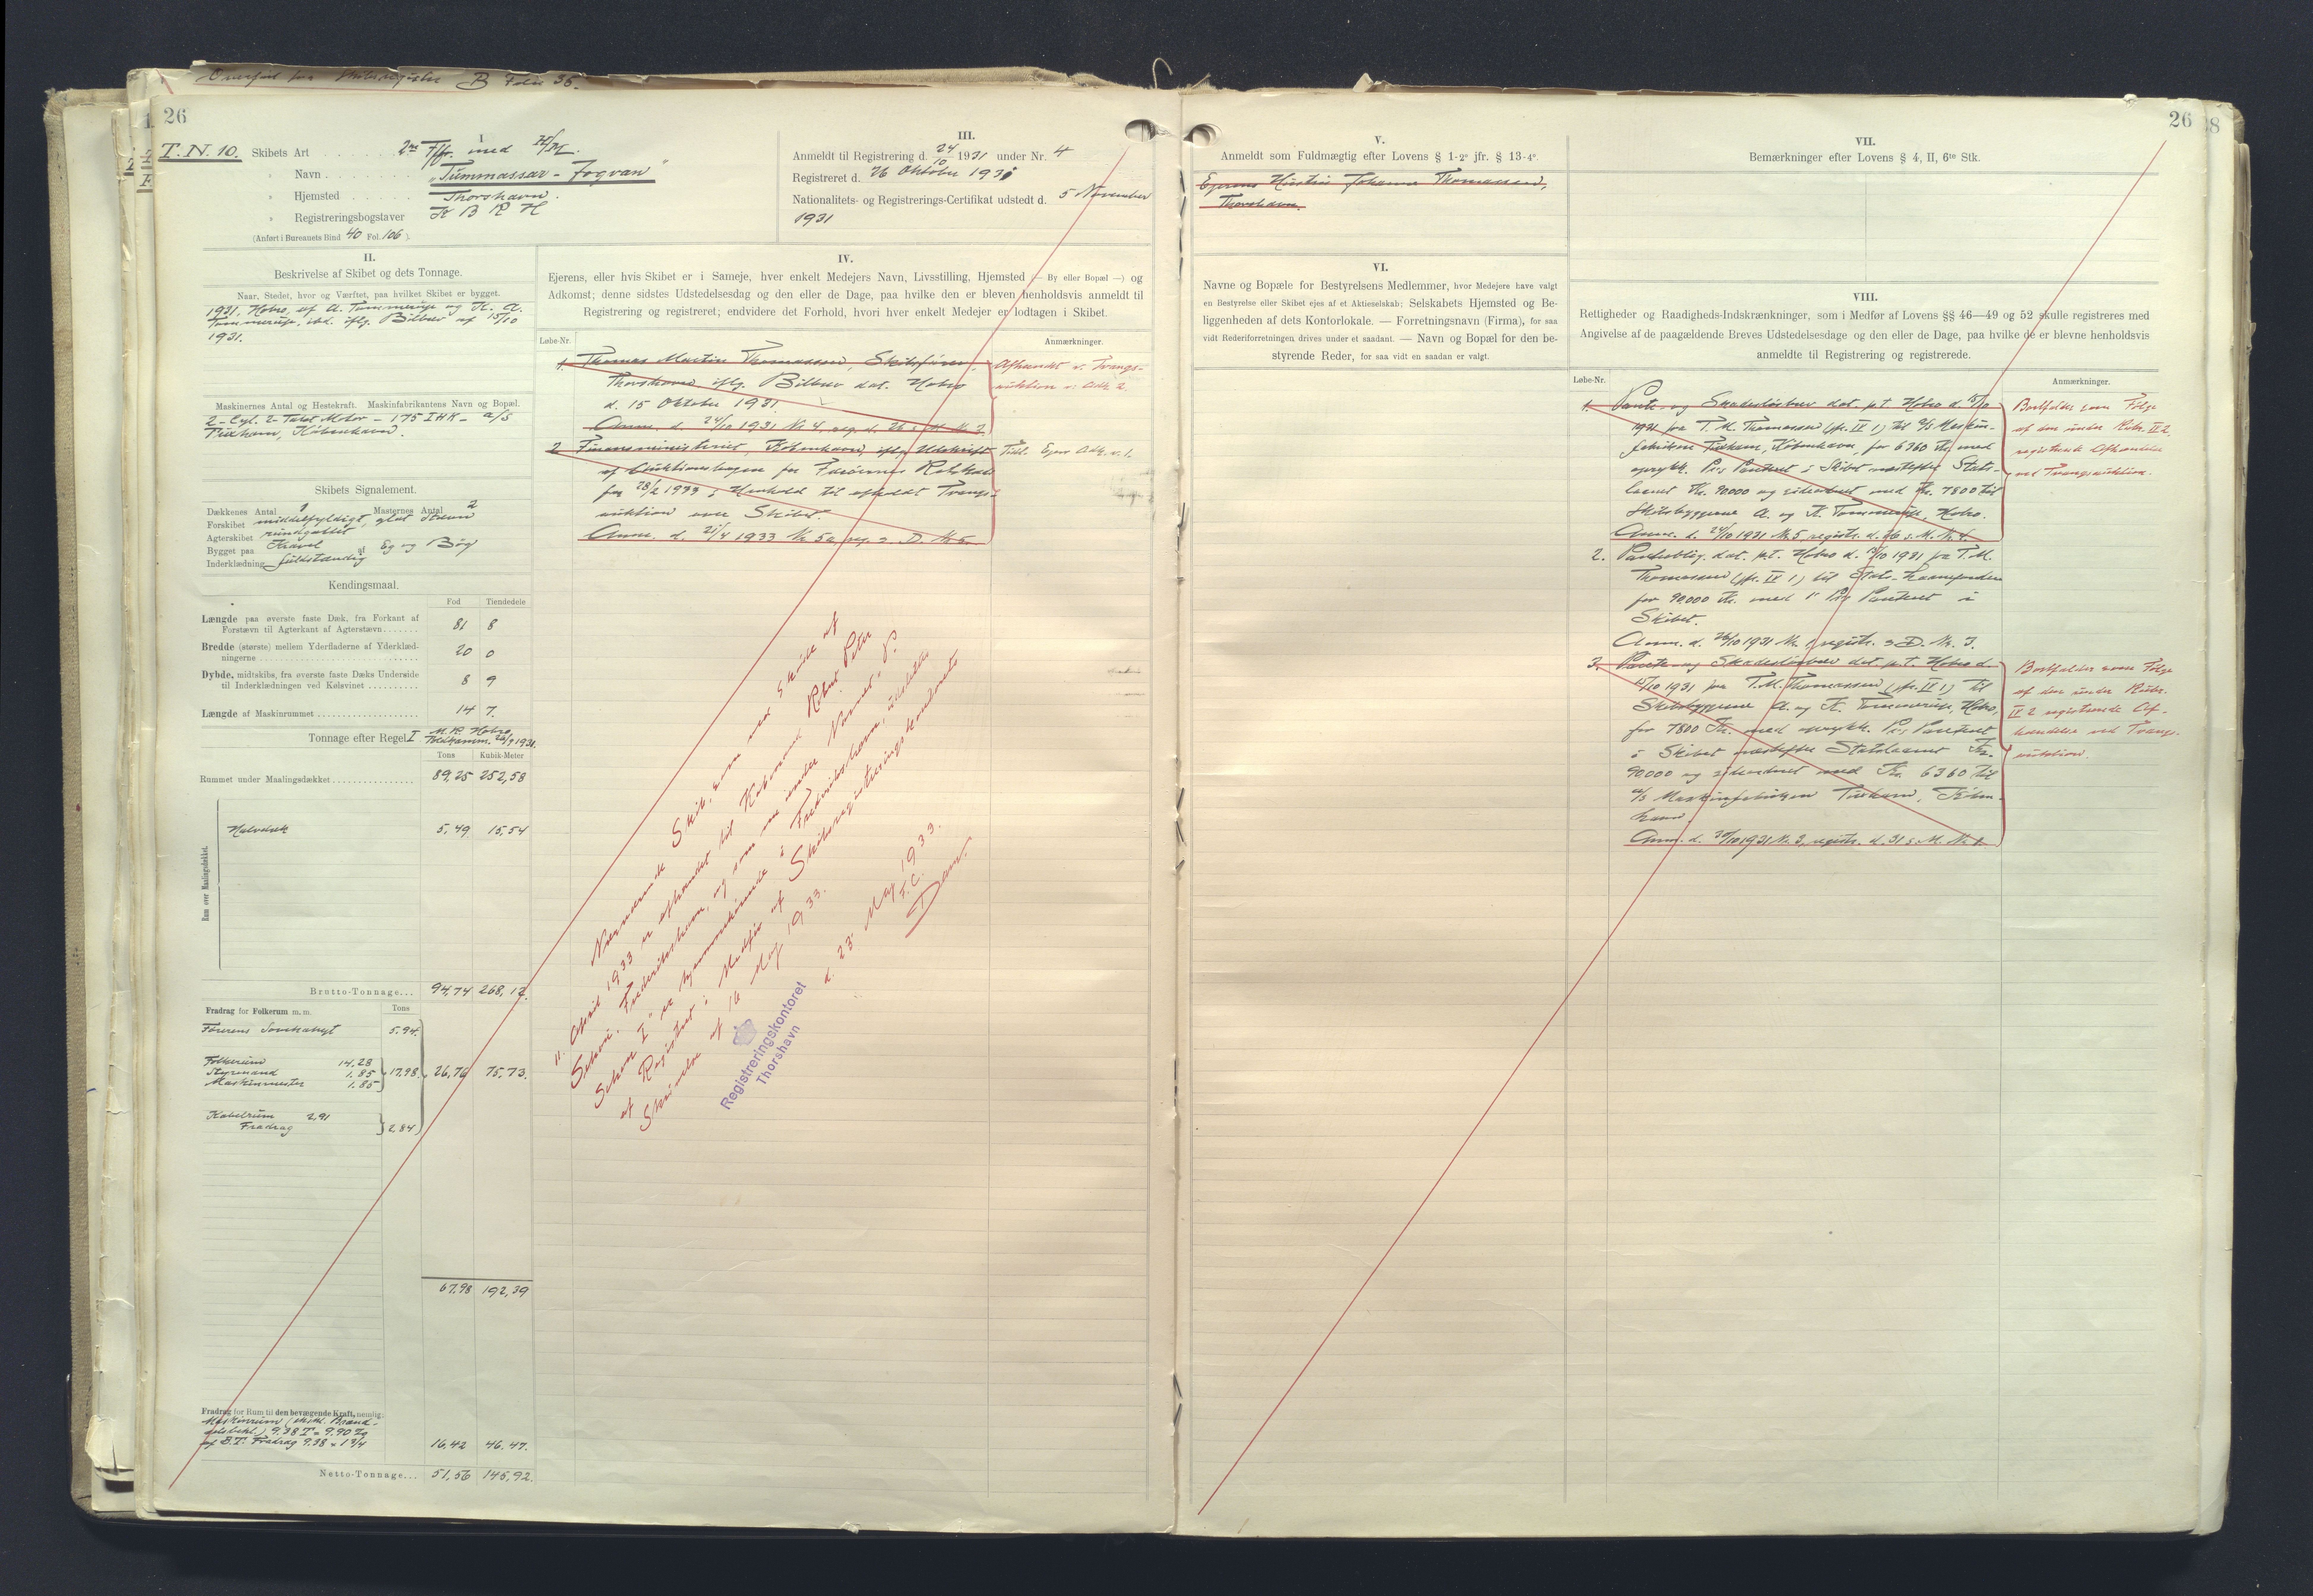 Overført fra Skibsregister B Folio 36.
26
T.N. 10.
I
Skibets Art 2m Ff. med H/M
" Navn "Tummassar-Jógvan"
" Hjemsted Thorshavn.
" Registreringsbogstaver
(Anført i Bureauets Bind 40 Fol. 106).
III.
Anmeldt til Registrering d. 24/10 1931 under Nr. 4
Registreret d. 26 Oktober 1931
Nationalitets- og Registrerings-Certifikat udstedt d. 5 November
1931
II.
Beskrivelse af Skibet og dets Tonnage.
Naar, Stedet, hvor og Værftet, paa hvilket Skibet er bygget.
1931, Hobro, af A. Tommerup og K. A.
Tommerup, ibd. iflg. Bilbrev af 15/10
1931.
Maskinernes Antal og Hestekraft. Maskinfabrikantens Navn og Bopæl.
2-Cyl. 2-Takt Motor - 175 IHK - A/S
Tuxham, København.
Skibets Signalement.
Dækkenes Antal 1 Masternes Antal 2
Forskibet middelfyldigt, glat Stævn
Agterskibet rundgattet
Bygget paa Kravel af Eg og Bøg
Inderklædning fuldstændig
Kendingsmaal.
Fod Tiendedele
Længde paa øverste faste Dæk, fra Forkant af
Forstævn til Agterkant af Agterstævn 81 8
Bredde (største) mellem Yderfladerne af Yderklæd-
ningerne 20 0
Dybde, midtskibs, fra øverste faste Dæks Underside
til Inderklædningen ved Kølsvinet 8 9
Længde af Maskinrummet 14 7.
Tonnage efter Regel I M.B. Hobro
Toldkamm. 26/9 1931.
Tons Kubik-Meter
Rummet under Maalingsdækket 89,25 252,58
Rum over Maalingsdækket.
Halvdæk 5,49 15,54
Brutto-Tonnage... 94,74 268,12.
Fradrag for Folkerum m. m. Tons
Førerens Soverkahyt 5,94.
Folkerum 14,28
Styrmand 1.85 17,98. 26,76 75,73.
Maskinmester 1.85
Kabelrum 2,91
Fradrag 2,84
67,98 192,39
Fradrag for Rum til den bevægende Kraft, nemlig:
Maskinrum (ekskl. Brænd-
selsbeh.) 9.38 T = 9.90 %
af B.T. Fradrag 9.38 × 1 3/4 16,42 46.47.
Netto-Tonnage... 51,56 145,92.
IV.
Ejerens, eller hvis Skibet er i Sameje, hver enkelt Medejers Navn, Livsstilling, Hjemsted (— By eller Bopæl —) og
Adkomst; denne sidstes Udstedelsesdag og den eller de Dage, paa hvilke den er bleven henholdsvis anmeldt til
Registrering og registreret; endvidere det Forhold, hvori hver enkelt Medejer er lodtagen i Skibet.
Løbe-Nr. Anmærkninger.
1. Thomas Martin Thomassen, Skibsfører,
Thorshavn iflg. Bilbrev dat. Hobro
d. 15 Oktober 1931.
Anm. d. 24/10 1931 Nr. 4, reg. d. 26 s. M. Nr. 3
Afhændet v. Tvangs-
auktion s: Adk 2
2 Finansministeriet, København, iflg. Udskrift
af Auktionsbogen for Færøernes Retskreds
for 28/2 1933 i Henhold til afholdt Tvangs-
auktion over Skibet.
Anm. d. 21/4 1933 Nr. 5a reg. s. D. Nr. 5.
Tidl. Ejer Adk. s. 1.
Nærværende Skib, som ved Skøde af
11. April 1933 er afhændet til Købmand Robert Peter
Schou, Frederikshavn, og som nu under Navnet "P.
Schou I" er hjemmehørende i Frederikshavn, udslettes
af Registret i Medfør af Skibsregistreringskontorets
Skrivelse af 16 Maj 1933.
d. 23. Maj 1933.
F.C.
Dam.
Registreringskontoret
Thorshavn
26
38
V.
Anmeldt som Fuldmægtig efter Lovens § 1-2° jfr. § 13-4°.
Ejerens Hustru Johanna Thomassen,
Thorshavn.
VI.
Navne og Bopæle for Bestyrelsens Medlemmer, hvor Medejere have valgt
en Bestyrelse eller Skibet ejes af et Aktieselskab; Selskabets Hjemsted og Be-
liggenheden af dets Kontorlokale. — Forretningsnavn (Firma), for saa
vidt Rederiforretningen drives under et saadant. — Navn og Bopæl for den be-
styrende Reder, for saa vidt en saadan er valgt.
VII.
Bemærkninger efter Lovens § 4, II, 6te Stk.
VIII.
Rettigheder og Raadigheds-Indskrænkninger, som i Medfør af Lovens §§ 46—49 og 52 skulle registreres med
Angivelse af de paagældende Breves Udstedelsesdage og den eller de Dage, paa hvilke de er blevne henholdsvis
anmeldte til Registrering og registrerede.
Løbe-Nr. Anmærkninger.
1. Pante- og Skadesløsbrev dat. p.t. Hobro d. 15/10
1931 fra T. M. Thomassen (jfr. IV 1) til A/S Maskin-
fabriken Tuxham, København, for 6360 Kr. med
oprykk. Pr.s Panteret i Skibet næstefter Stats-
laanet Kr. 90.000 og sideordnet med Kr. 7800 til
Skibsbyggerne A. og K. Tommerup, Hobro.
Anm. d. 24/10 1931 Nr. 5 registr. d. 26 s. M. Nr. 4.
Bortfalder som Følge
af den under Rubr. IV 2
registrerede Afhændelse
ved Tvangsauktion.
2. Panteoblig. dat. p.t. Hobro d. 15/10 1931 fra T. M.
Thomassen (jfr. IV 1) til Stats-Laanefonden
for 90.000 Kr. med 1' Pr.s Panteret i
Skibet.
Anm. d. 26/10 1931 Nr. registr. s. D. Nr. 3.
3. Pante- og Skadesløsbrev dat. p.t. Hobro d.
15/10 1931 fra T. M. Thomassen (jfr. IV 1) til
Skibsbyggerne A. og K. Tommerup, Hobro,
for 7800 Kr. med oprykk. Pr.s Panteret
i Skibet næstefter Statslaanet Kr.
90.000 og sideordnet med Kr. 6360 til
A/S Maskinfabriken Tuxham, Køben-
havn.
Anm. d. 30/10 1931 Nr. 3, registr. d. 31 s. M. Nr. 1.
Bortfalder som Følge
af den under Rubr.
IV 2 registrerede Af-
hændelse ved Tvangs-
auktion.